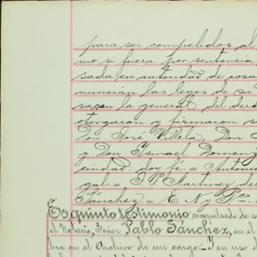 para ser compelidos al
mo si fuera por sentencia
sada en autoridad de cosa
nuncian las leyes de su
sa con la general del dere
otorgaron y firmaron s
Don José Villela, Don
y Don Ismael Domeng
cindad doy fé = Antonio
gal = J. P. Martinez de
Sánchez = E. N. y Pco.
Esquinto testimonio compulsado de s
el Notario, Señor Pablo Sánchez, en el
bra en el Archivo de mi cargo = Y en uso d